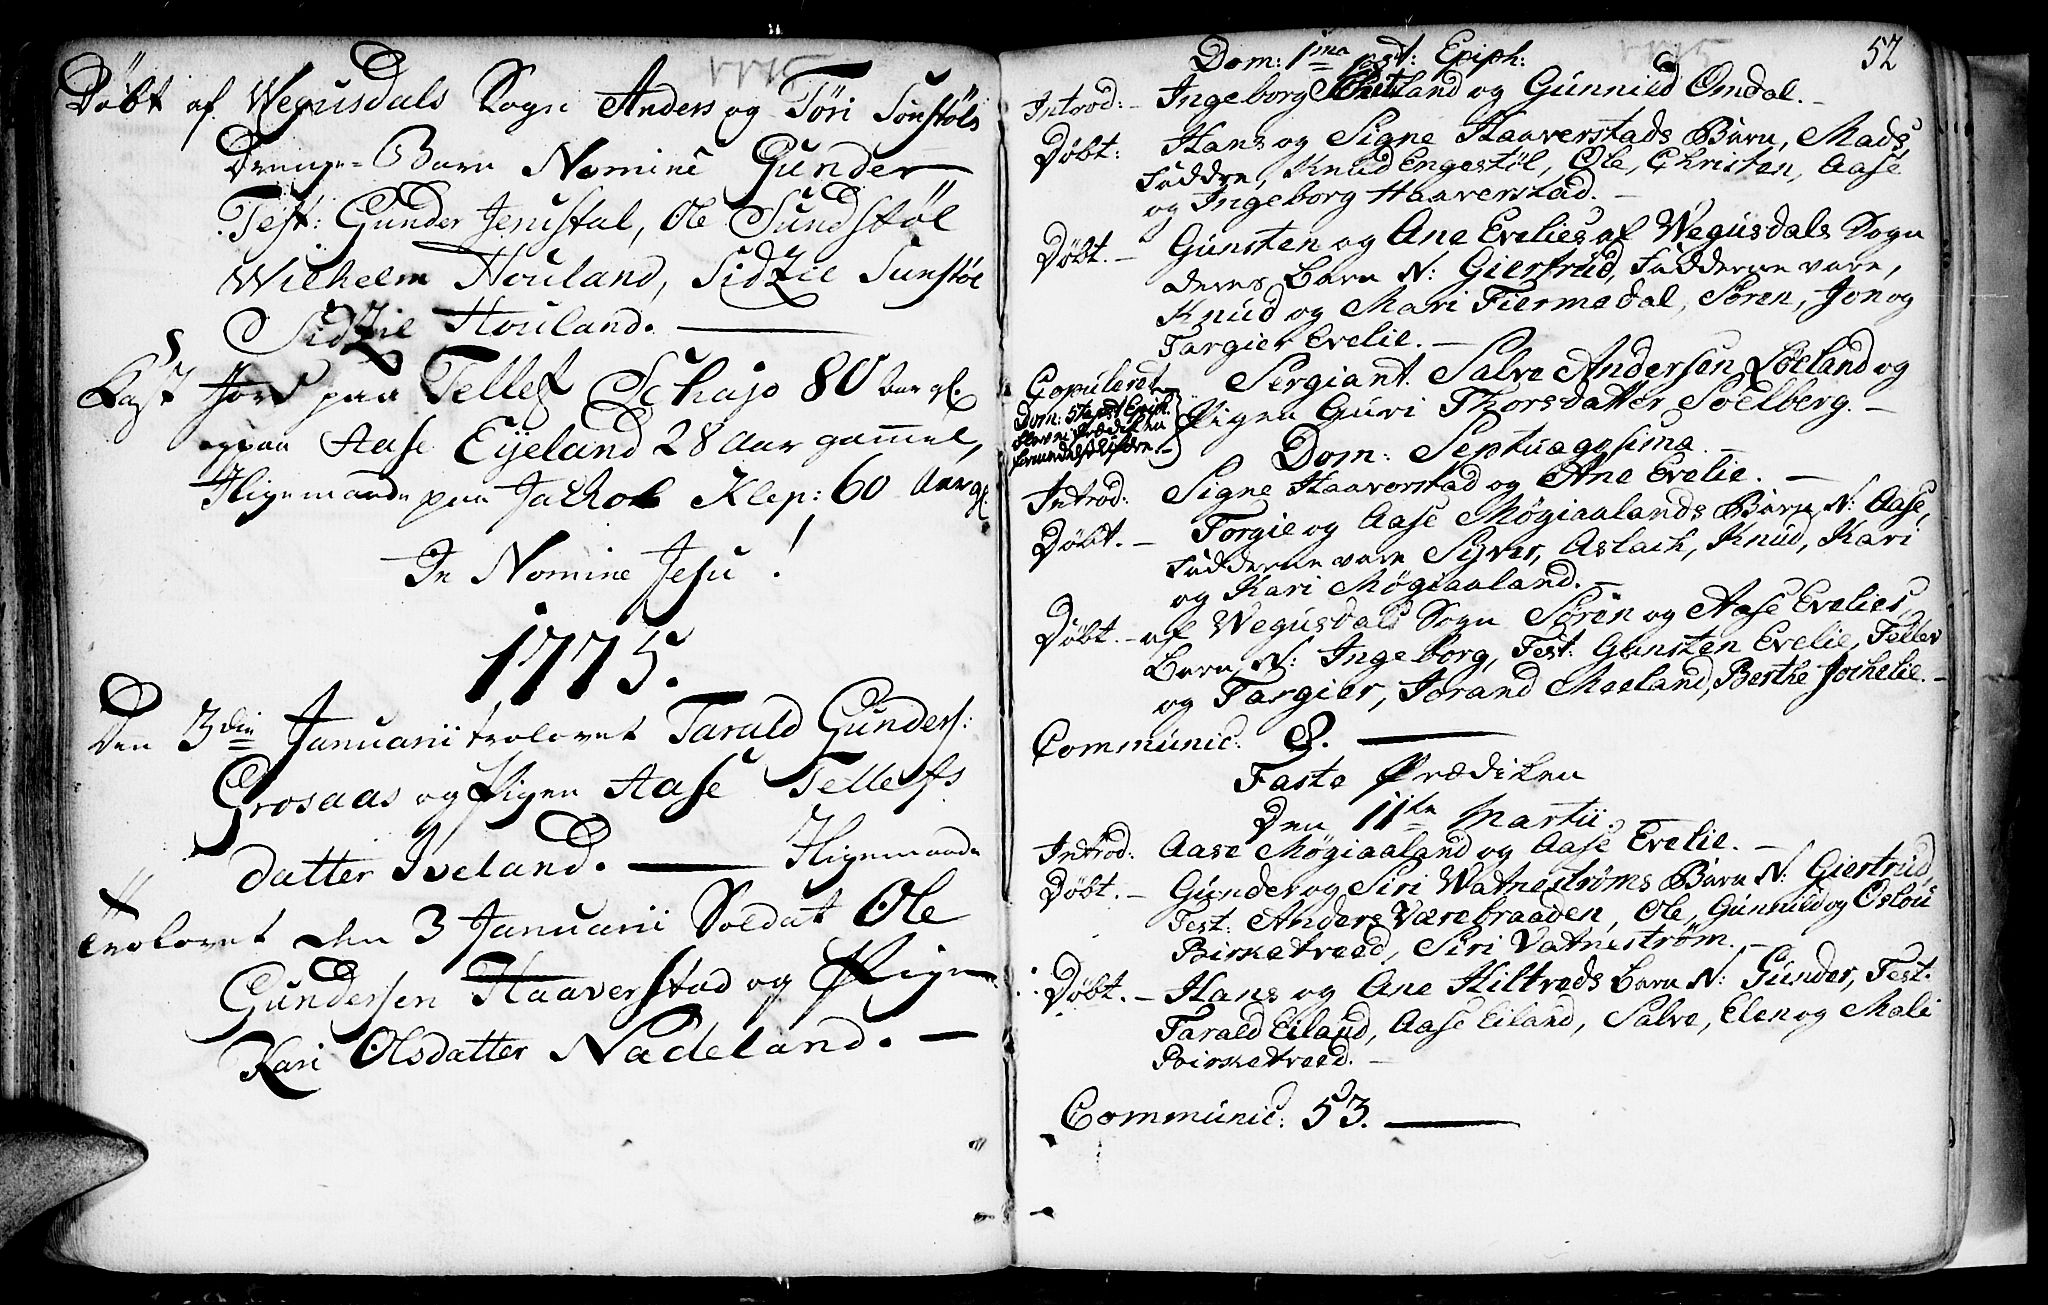 1775
Døbt af Wegusdals Sogn Anders og Tøri Sunstøls
Drenge-Barn Nomine Gunder
Test: Gunder Jerustal, Ole Sundstøl
Wilhelm Houland, Sidzil Sunstøl
Sidzil Houland.
Kast Jord paa Tellef Schajo 80 Aar gl.
og paa Aase Eijeland 28 Aar gammel,
Iligemaade paa Jachob Klep: 60 Aar gl.
In Nomine Jesu!
1775.
Den 3die Januarii trolovet Tarald Gunders:
Grosaas og Pigen Aase Tellefs
datter Iveland. Iligemaade
Trolovet den 3 Januarii Soldat Ole
Gundersen Haaverstad og Pigen
Kari Olsdatter Nadeland.
1775
52
Dom: 1ma post: Epiph:
Introd: Ingeborg og Gunnild Omdal.
Døbt: Hans og Signe Haaverstads Barn, Mads,
Faddre, Knud Engestøl, Ole, Christen, Aase
og Ingeborg Haaverstad.
Døbt. Gunsten og Ane Evelies af Wegusdals Sogn
deres Barn N: Giertrud, Fadderne vare,
Knud og Mari Fiermedal, Søren, Jon og
Targier Evelie.
Copuleret Sergiant Salve Andersen Løeland og
Dom: 5ta post Epiph.
Pigen Guri Thorsdatter Soelberg.
blev ei Prædiken
Dom: Septuagesima
Introd: Signe Haaverstad og Ane Evelie.
Døbt. Torgie og Aase Møgiaalands Barn N: Aase,
Fadderne vare Syver, Aslach, Knud, Kari
og Kari Møgiaaland.
Døbt. af Wegusdals Sogn Søren og Aase Evelies
Barn N: Ingeborg, Test: Gunsten Evelie, Tellev
og Targier, Jorand Moeland, Berthe Jochelie.
Communic: 8.
Faste Prædiken
Den 11te Martii.
Introd: Aase Møgiaaland og Aase Evelie.
Døbt. Gunder og Siri Watnestrøms Barn N: Giertrud,
Test: Anders Værebraaden, Ole, Gunnild og Oslou
Birketveed, Siri Vatnestrøm.
Døbt. Hans og Ane Hiltveds Barn N: Gunder, Test:
Tarald Eiland, Aase Eiland, Salve, Elen og Mali
Birketveed.
Communic: 53.